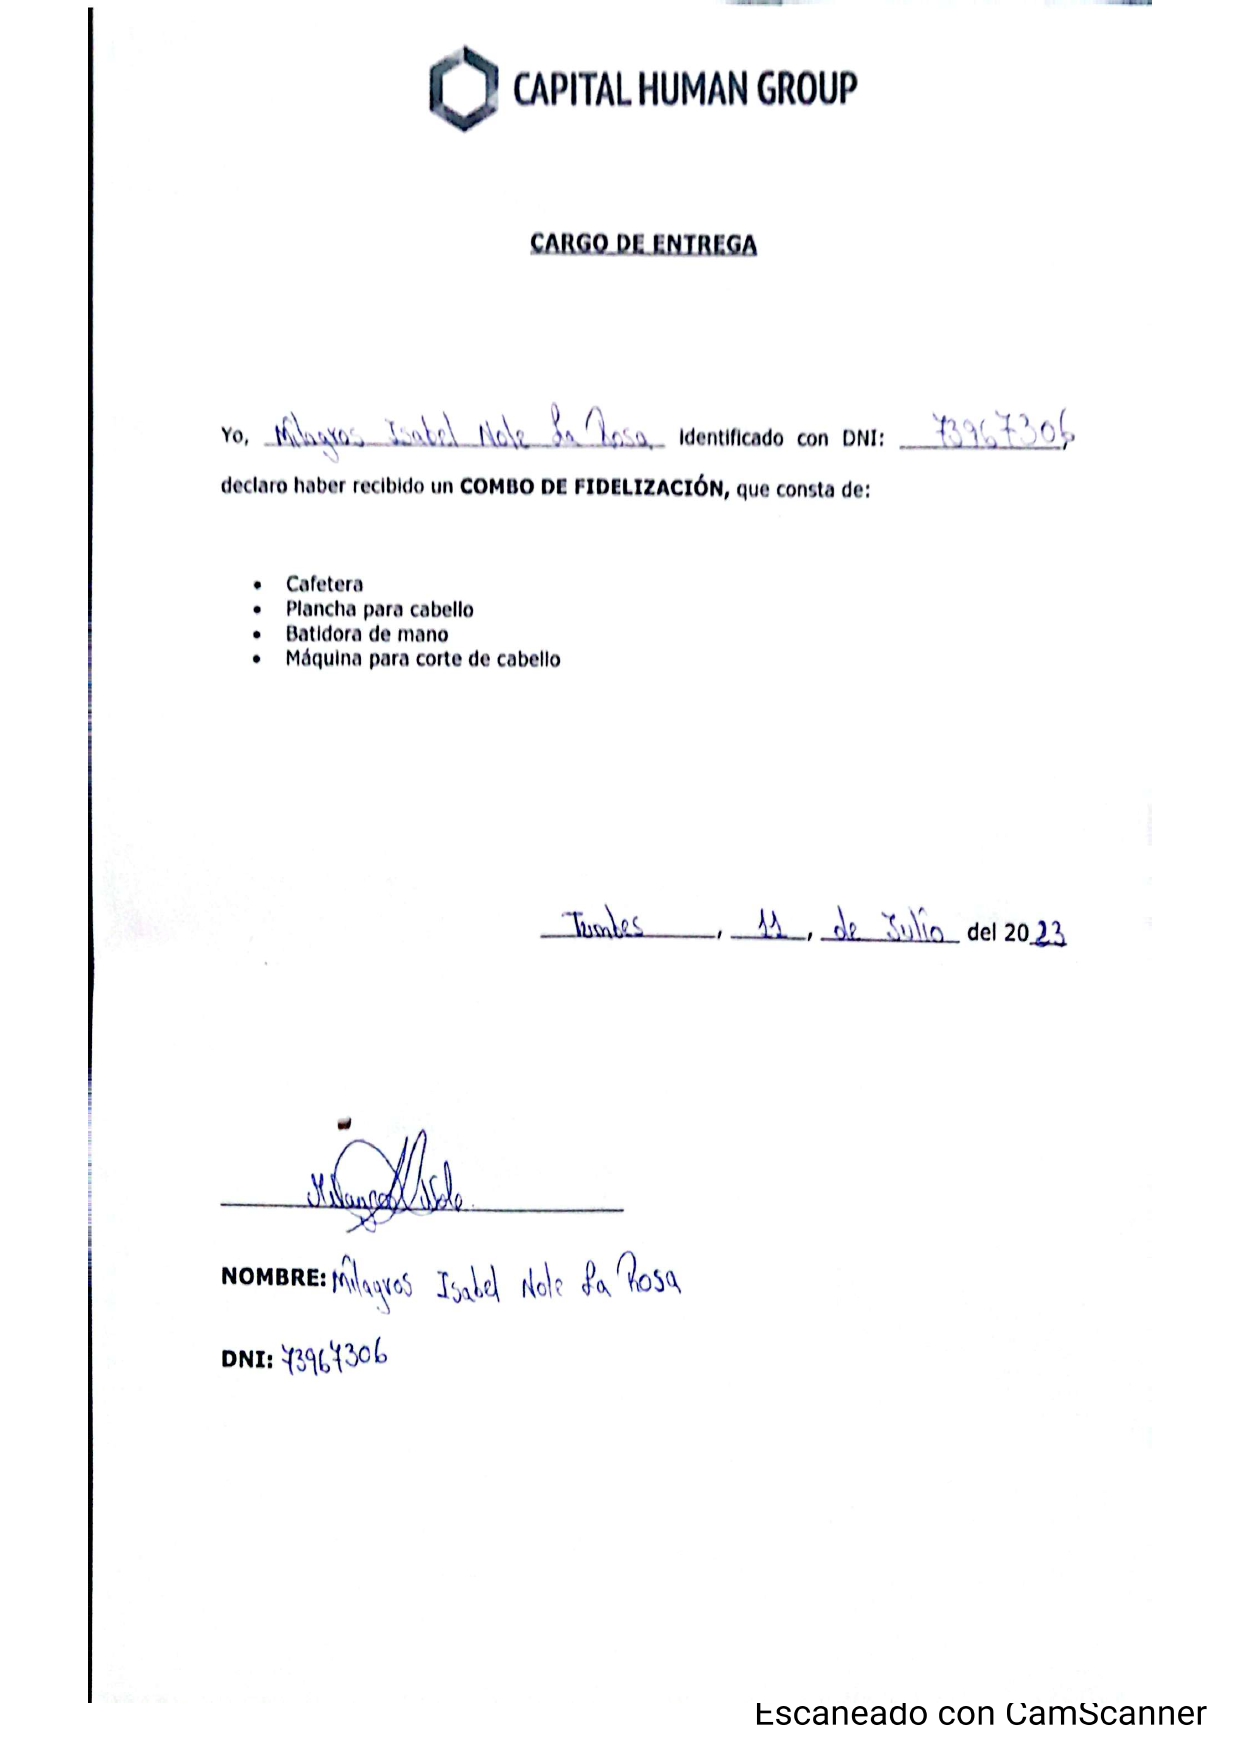 CAPITAL HUMAN GROUP
CARGO DE ENTREGA
Yo, Milagros Isabel Nole La Rosa Identificado con DNI: 73967306,
declaro haber recibido un COMBO DE FIDELIZACIÓN, que consta de:
• Cafetera
• Plancha para cabello
• Batidora de mano
• Máquina para corte de cabello
Tumbes, 11, de Julio del 2023
NOMBRE: Milagros Isabel Nole La Rosa
DNI: 73967306
Escaneado con CamScanner